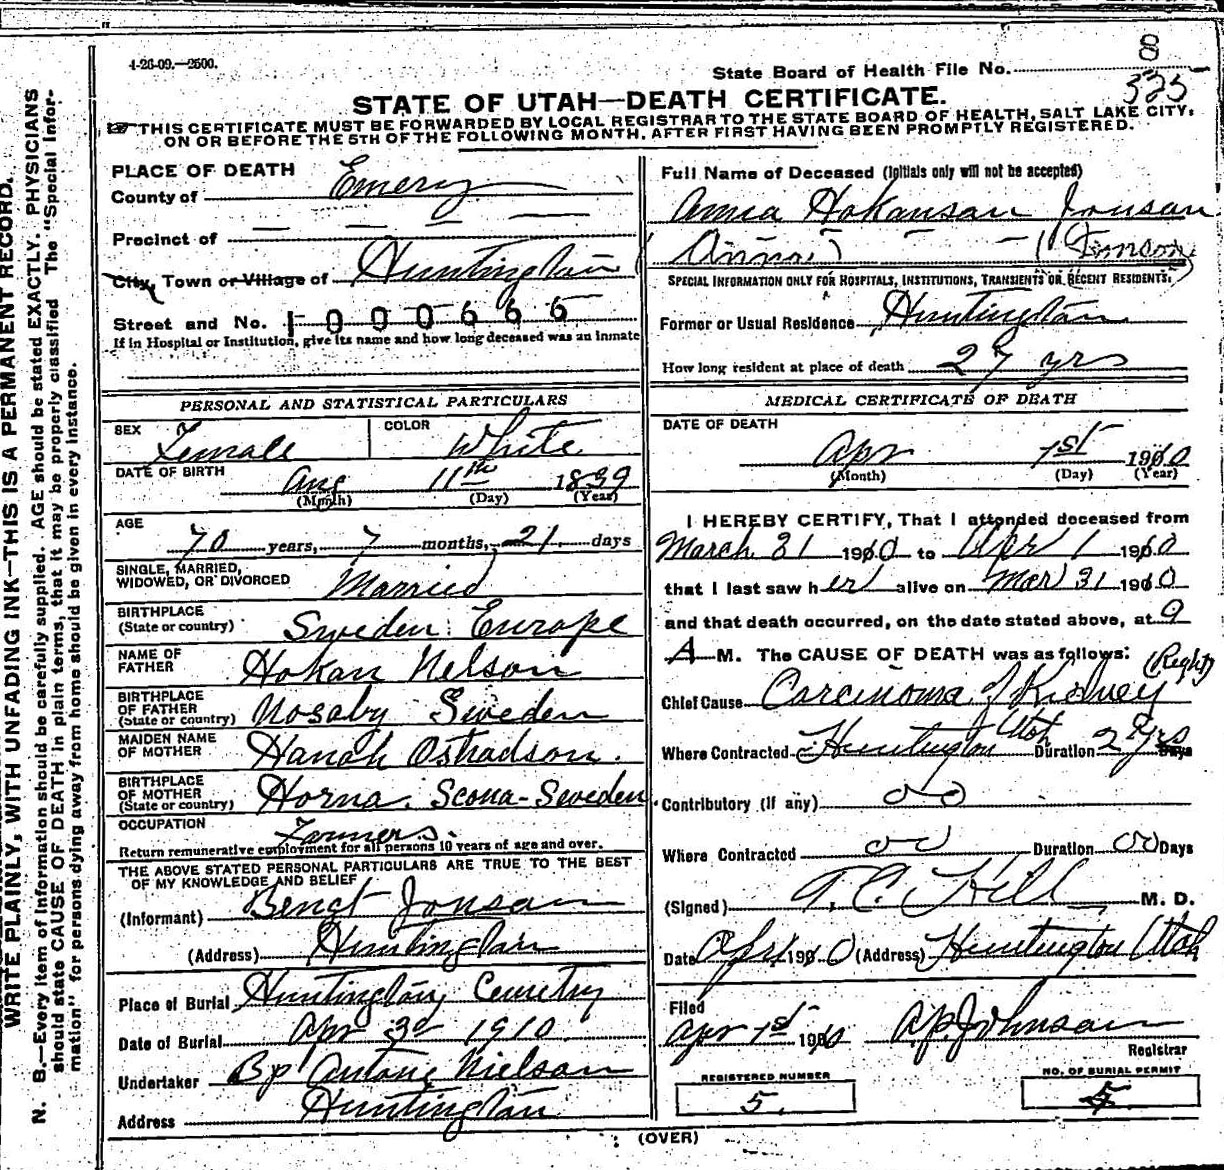 4-26-09.—2500.
8
State Board of Health File No.
335
STATE OF UTAH—DEATH CERTIFICATE.
☞ THIS CERTIFICATE MUST BE FORWARDED BY LOCAL REGISTRAR TO THE STATE BOARD OF HEALTH, SALT LAKE CITY,
ON OR BEFORE THE 5TH OF THE FOLLOWING MONTH, AFTER FIRST HAVING BEEN PROMPTLY REGISTERED.
WRITE PLAINLY, WITH UNFADING INK—THIS IS A PERMANENT RECORD.
N. B.—Every item of information should be carefully supplied. AGE should be stated EXACTLY. PHYSICIANS
should state CAUSE OF DEATH in plain terms, that it may be properly classified The "Special Infor-
mation" for persons dying away from home should be given in every instance.
PLACE OF DEATH
County of Emery
Precinct of
City, Town or Village of Huntington
Street and No. 1000666
If in Hospital or Institution, give its name and how long deceased was an inmate
PERSONAL AND STATISTICAL PARTICULARS
SEX Female COLOR White
DATE OF BIRTH Aug 11th 1839
(Month) (Day) (Year)
AGE 70 years, 7 months, 21 days
SINGLE, MARRIED,
WIDOWED, OR DIVORCED Married
BIRTHPLACE
(State or country) Sweden Europe
NAME OF
FATHER Hokan Nelson
BIRTHPLACE
OF FATHER
(State or country) Nosaby Sweden
MAIDEN NAME
OF MOTHER Hanah Ostradson.
BIRTHPLACE
OF MOTHER
(State or country) Horna. Scona-Sweden
OCCUPATION Farmers.
Return remunerative employment for all persons 10 years of age and over.
THE ABOVE STATED PERSONAL PARTICULARS ARE TRUE TO THE BEST
OF MY KNOWLEDGE AND BELIEF
(Informant) Benct Jonsan
(Address) Huntington
Place of Burial Huntington Cemetry
Date of Burial Apr 3d 1910
Undertaker Bp Antone Nielson
Address Huntington
Full Name of Deceased (Initials only will not be accepted)
Anna Hokansan Jonsan
(Anna)
SPECIAL INFORMATION ONLY FOR HOSPITALS, INSTITUTIONS, TRANSIENTS OR RECENT RESIDENTS.
Former or Usual Residence Huntington
How long resident at place of death 27 yrs
MEDICAL CERTIFICATE OF DEATH
DATE OF DEATH
Apr 1st 1910
(Month) (Day) (Year)
I HEREBY CERTIFY, That I attended deceased from
March 31 1910 to Apr 1 1910
that I last saw her alive on Mar 31 1910
and that death occurred, on the date stated above, at 9
A M. The CAUSE OF DEATH was as follows:
(Right)
Chief Cause Carcinoma of Kidney
Where Contracted Huntington Utah Duration 2 Yrs Days
Contributory (If any) oo
Where Contracted oo Duration oo Days
(Signed) T. C. Hill M. D.
Date Apr 1 1910 (Address) Huntington Utah
Filed
Apr 1st 1910 A.P. Johnson
Registrar
REGISTERED NUMBER
5.
NO. OF BURIAL PERMIT
5
(OVER)